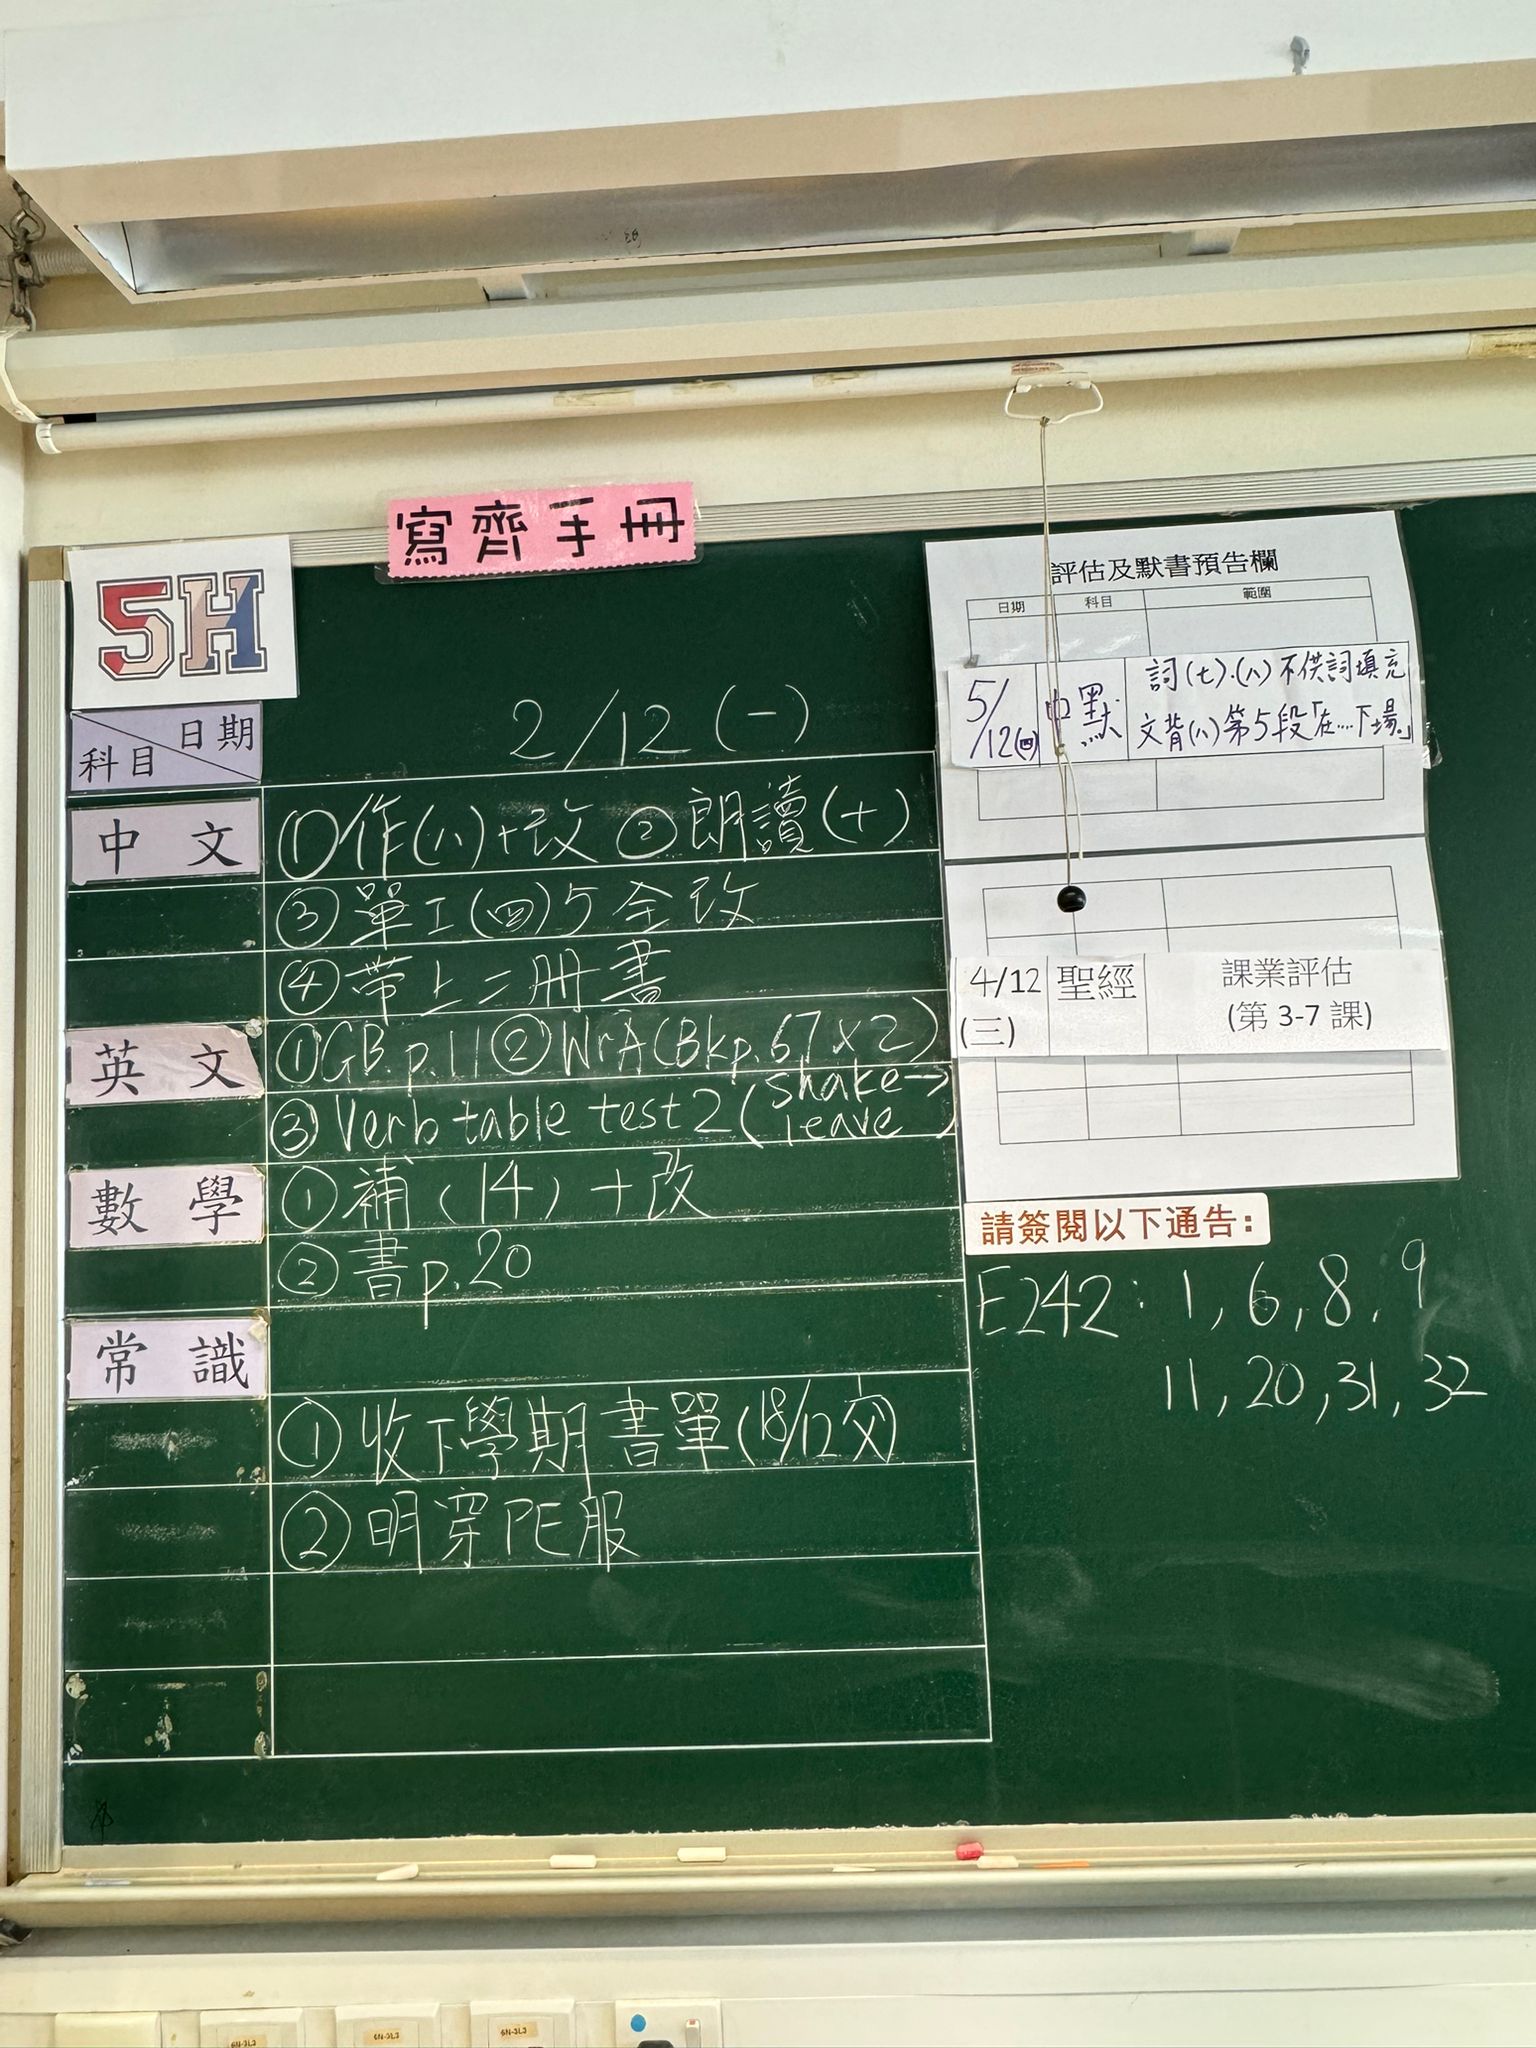 寫齊手冊
5H
日期
科目
2/12 (一)
中文
①作(八)+改 ②朗讀(十)
③單工(四)5全改
④帶上二冊書
英文
①GB.p.11 ②WrA(Bkp.67x2)
③Verb table test 2 (shake→
leave )
數學
①補(14)+改
②書p.20
常識
①收下學期書單(18/12交)
②明穿PE服
評估及默書預告欄
日期 科目 範圍
5/12(四) 中默 詞(七).(八)不供詞填充
文背(八)第5段「在…下場。」
4/12 聖經 課業評估
(三) (第 3-7 課)
請簽閱以下通告:
E242: 1, 6, 8, 9
11, 20, 31, 32
6N-3L3
6N-3L3
6N-3L3